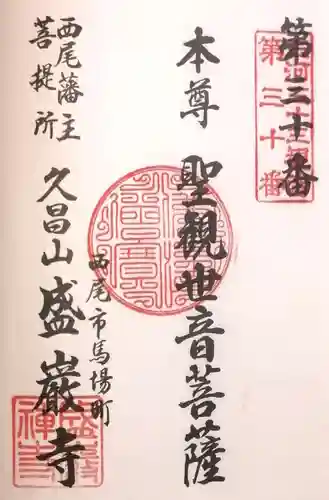 第三十番
第三十番
本尊 聖観世音菩薩
西尾市馬場町
西尾藩主
菩提所
久昌山 盛巖寺